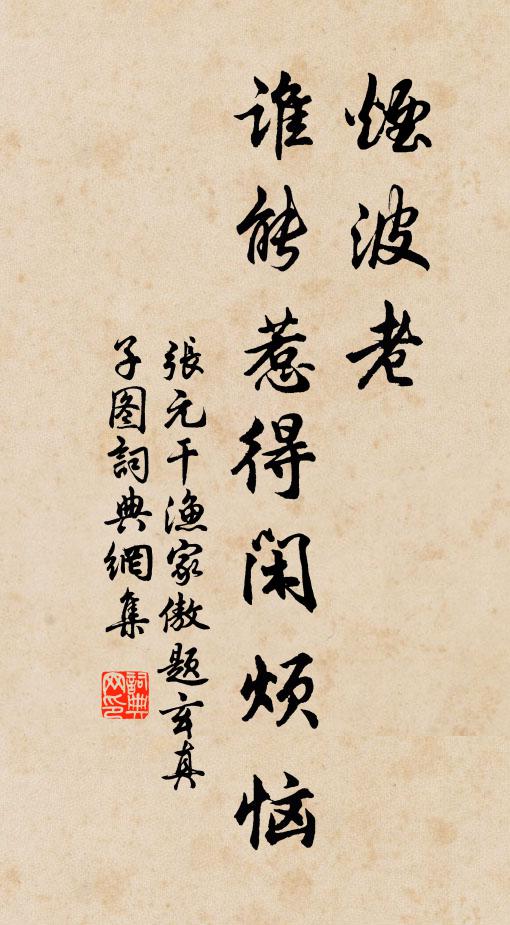 煙波老
谁能惹得闲烦恼
張元干漁家傲題玄真
子图詞典網集
詞典網印